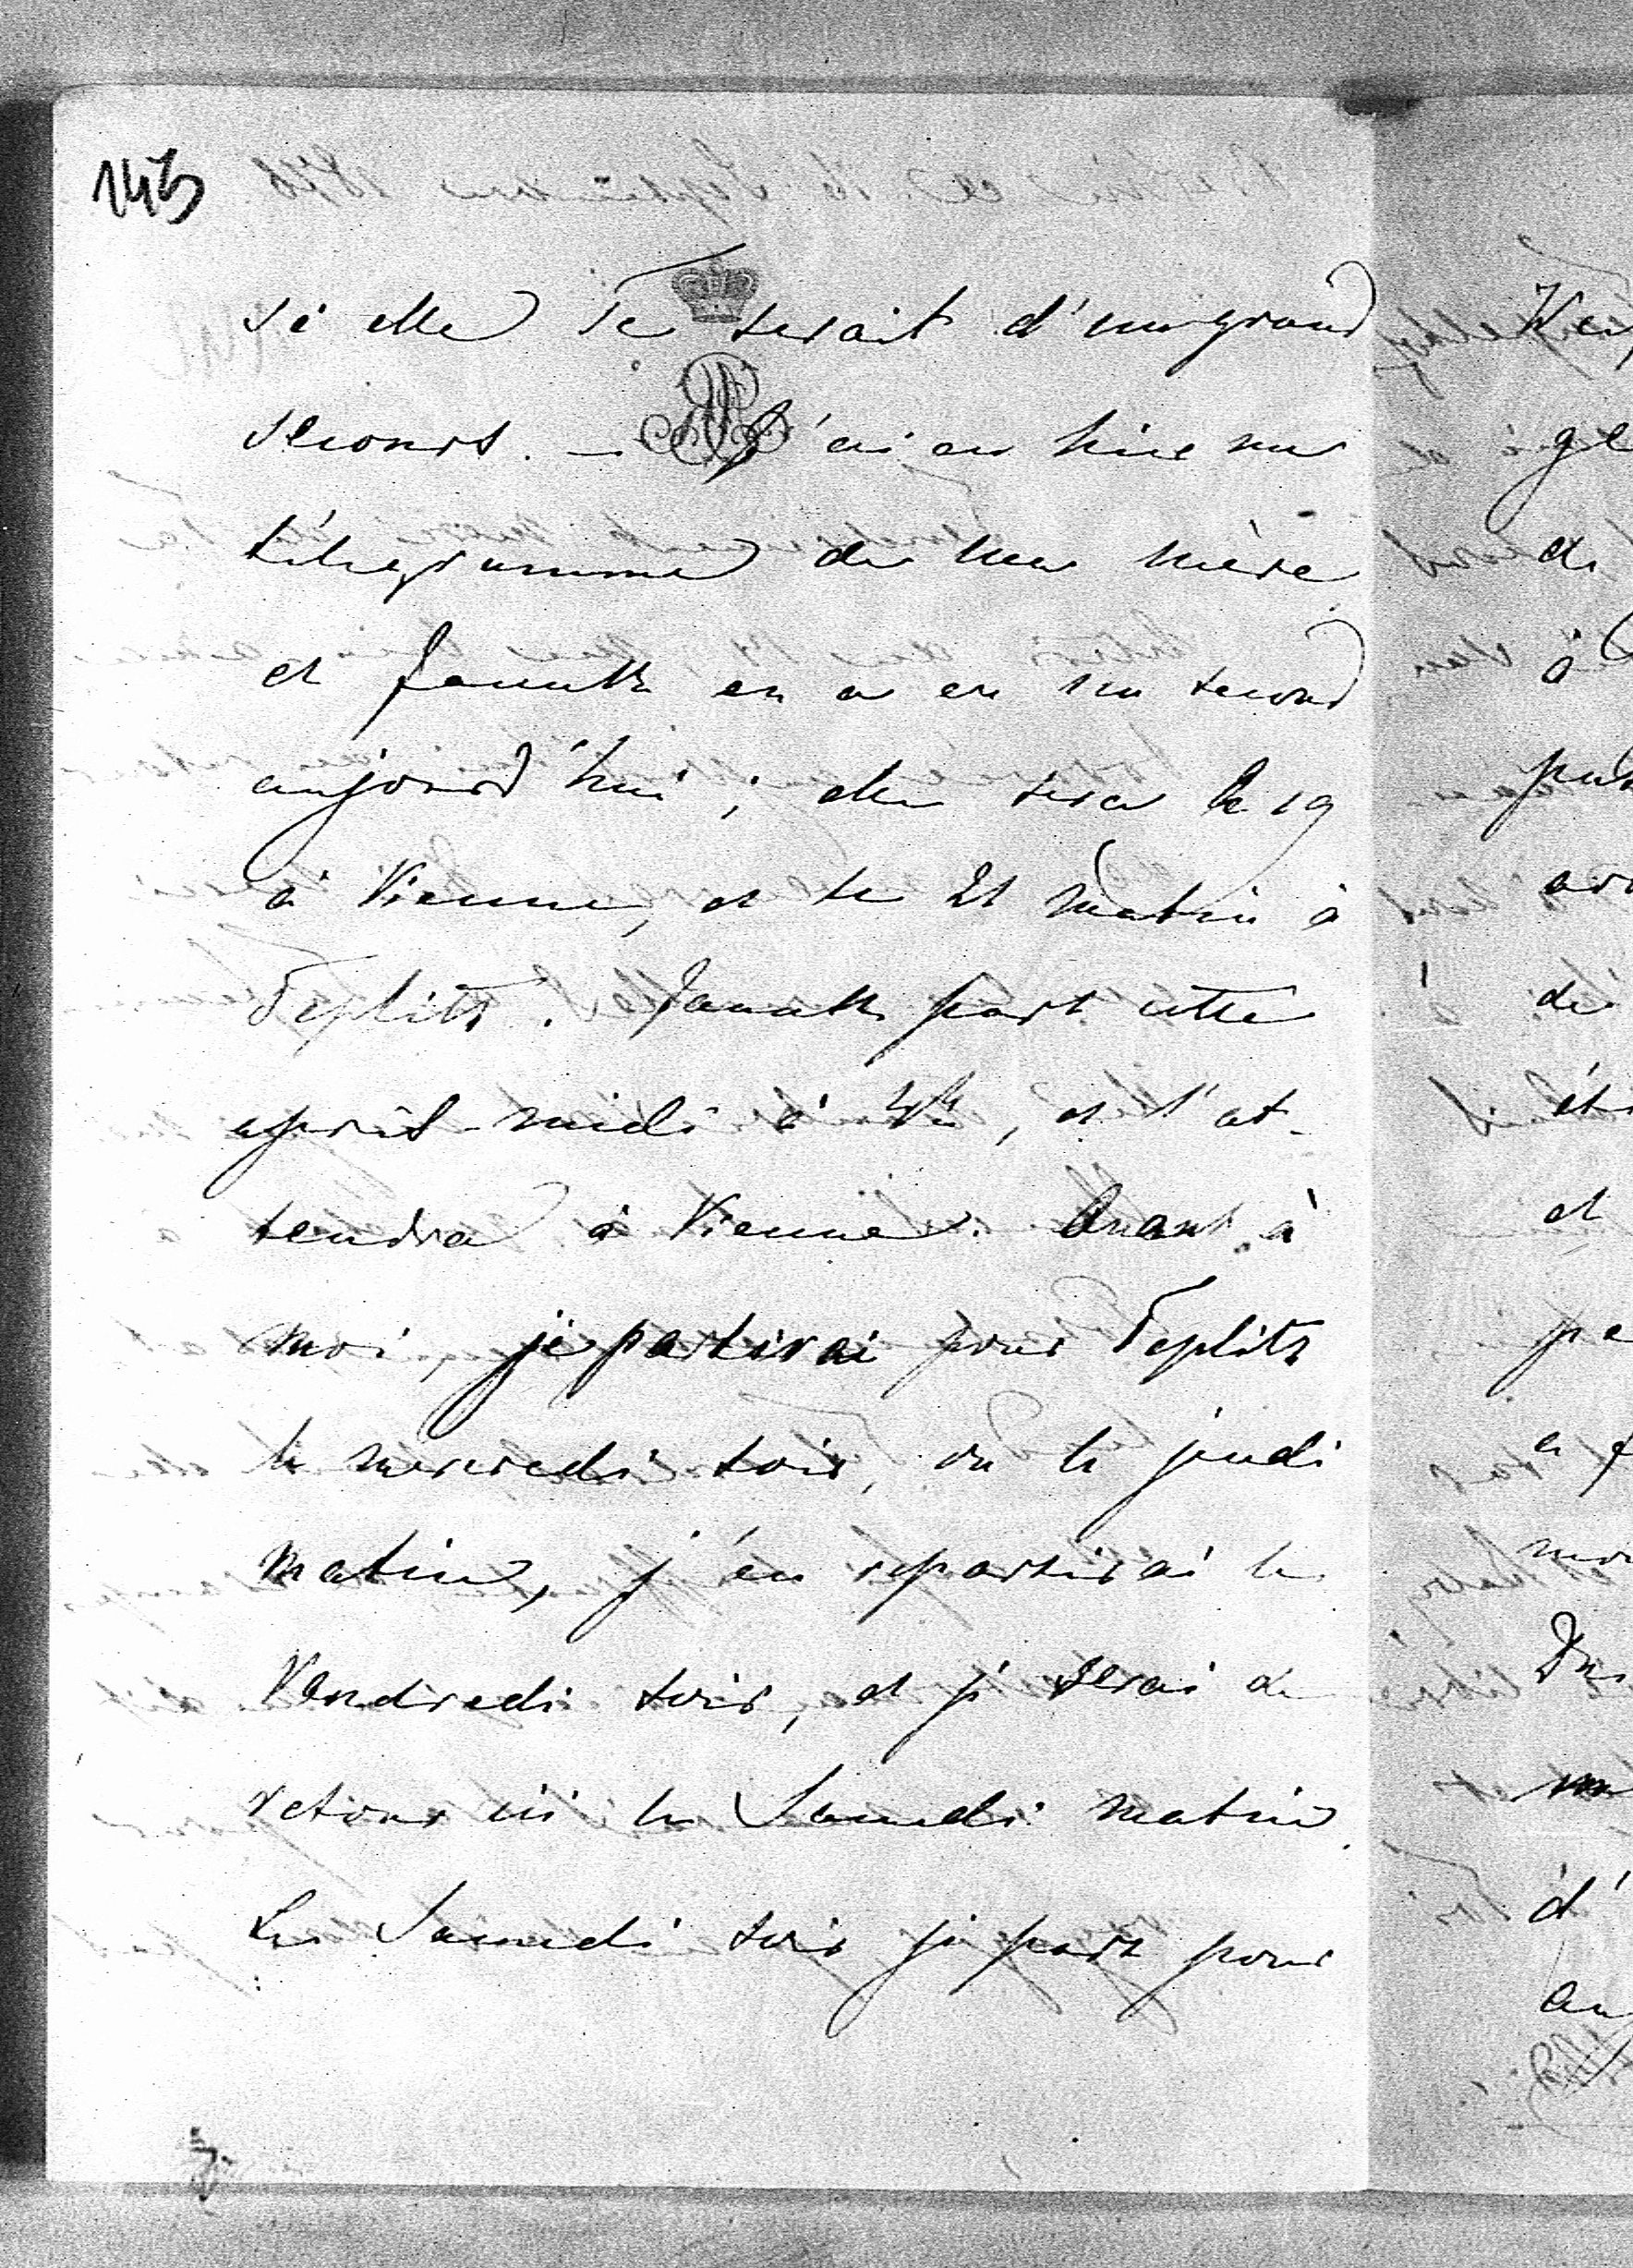 143
si elle Te serait d'un grand
secours. — J'ai eu hier un
télégramme de ma mère
et en a eu un second
aujourd'hui ; elle sera le 19
à Vienne, et le 21 matin à
Teplitz. part cette
après-midi à 4h, et l'at-
tendra à Vienne. Quant à
moi, je partirai pour Teplitz
le mercredi soir, ou le jeudi
matin, j'en repartirai le
Vendredi soir, et je serai de
retour ici le Samedi matin.
Le Samedi soir je pars pour